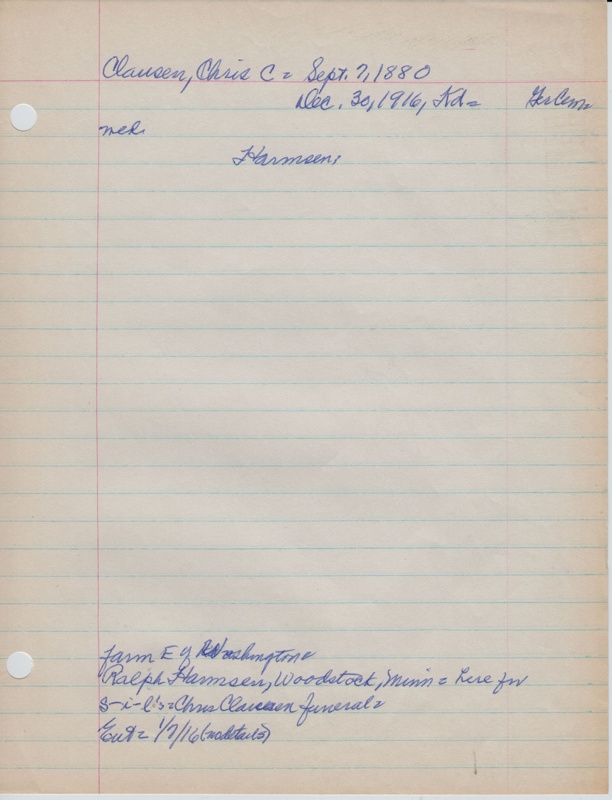 Clausen, Chris C = Sept. 7, 1880
Dec. 30, 1916, Kd = Ger Cem =
med.
Harmsen;
Farm E of Washington =
Ralph Harmsen, Woodstock, Minn = here for
s-i-l's = Chris Clausen funeral =
1/2/16 (no details)